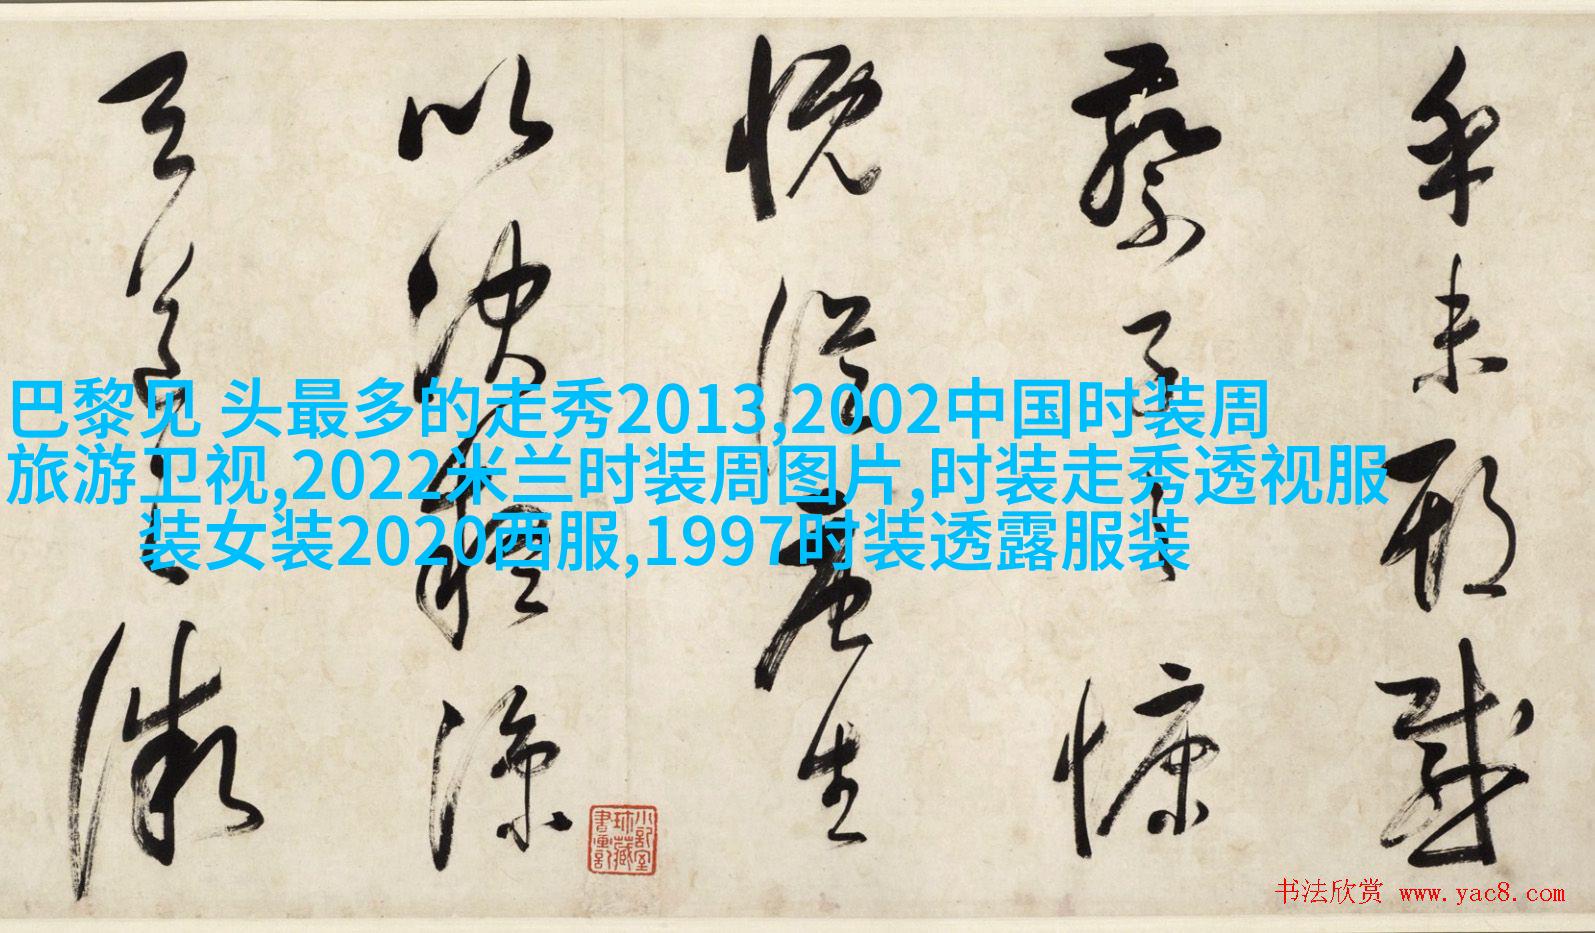 乎未期感
蔡子之慷
慨從唐生
以決疑諒
天道之微
巴黎见 头最多的走秀2013,2002中国时装周
旅游卫视,2022米兰时装周图片,时装走秀透视服
装女装2020西服,1997时装透露服装
书法欣赏 www.yac8.com